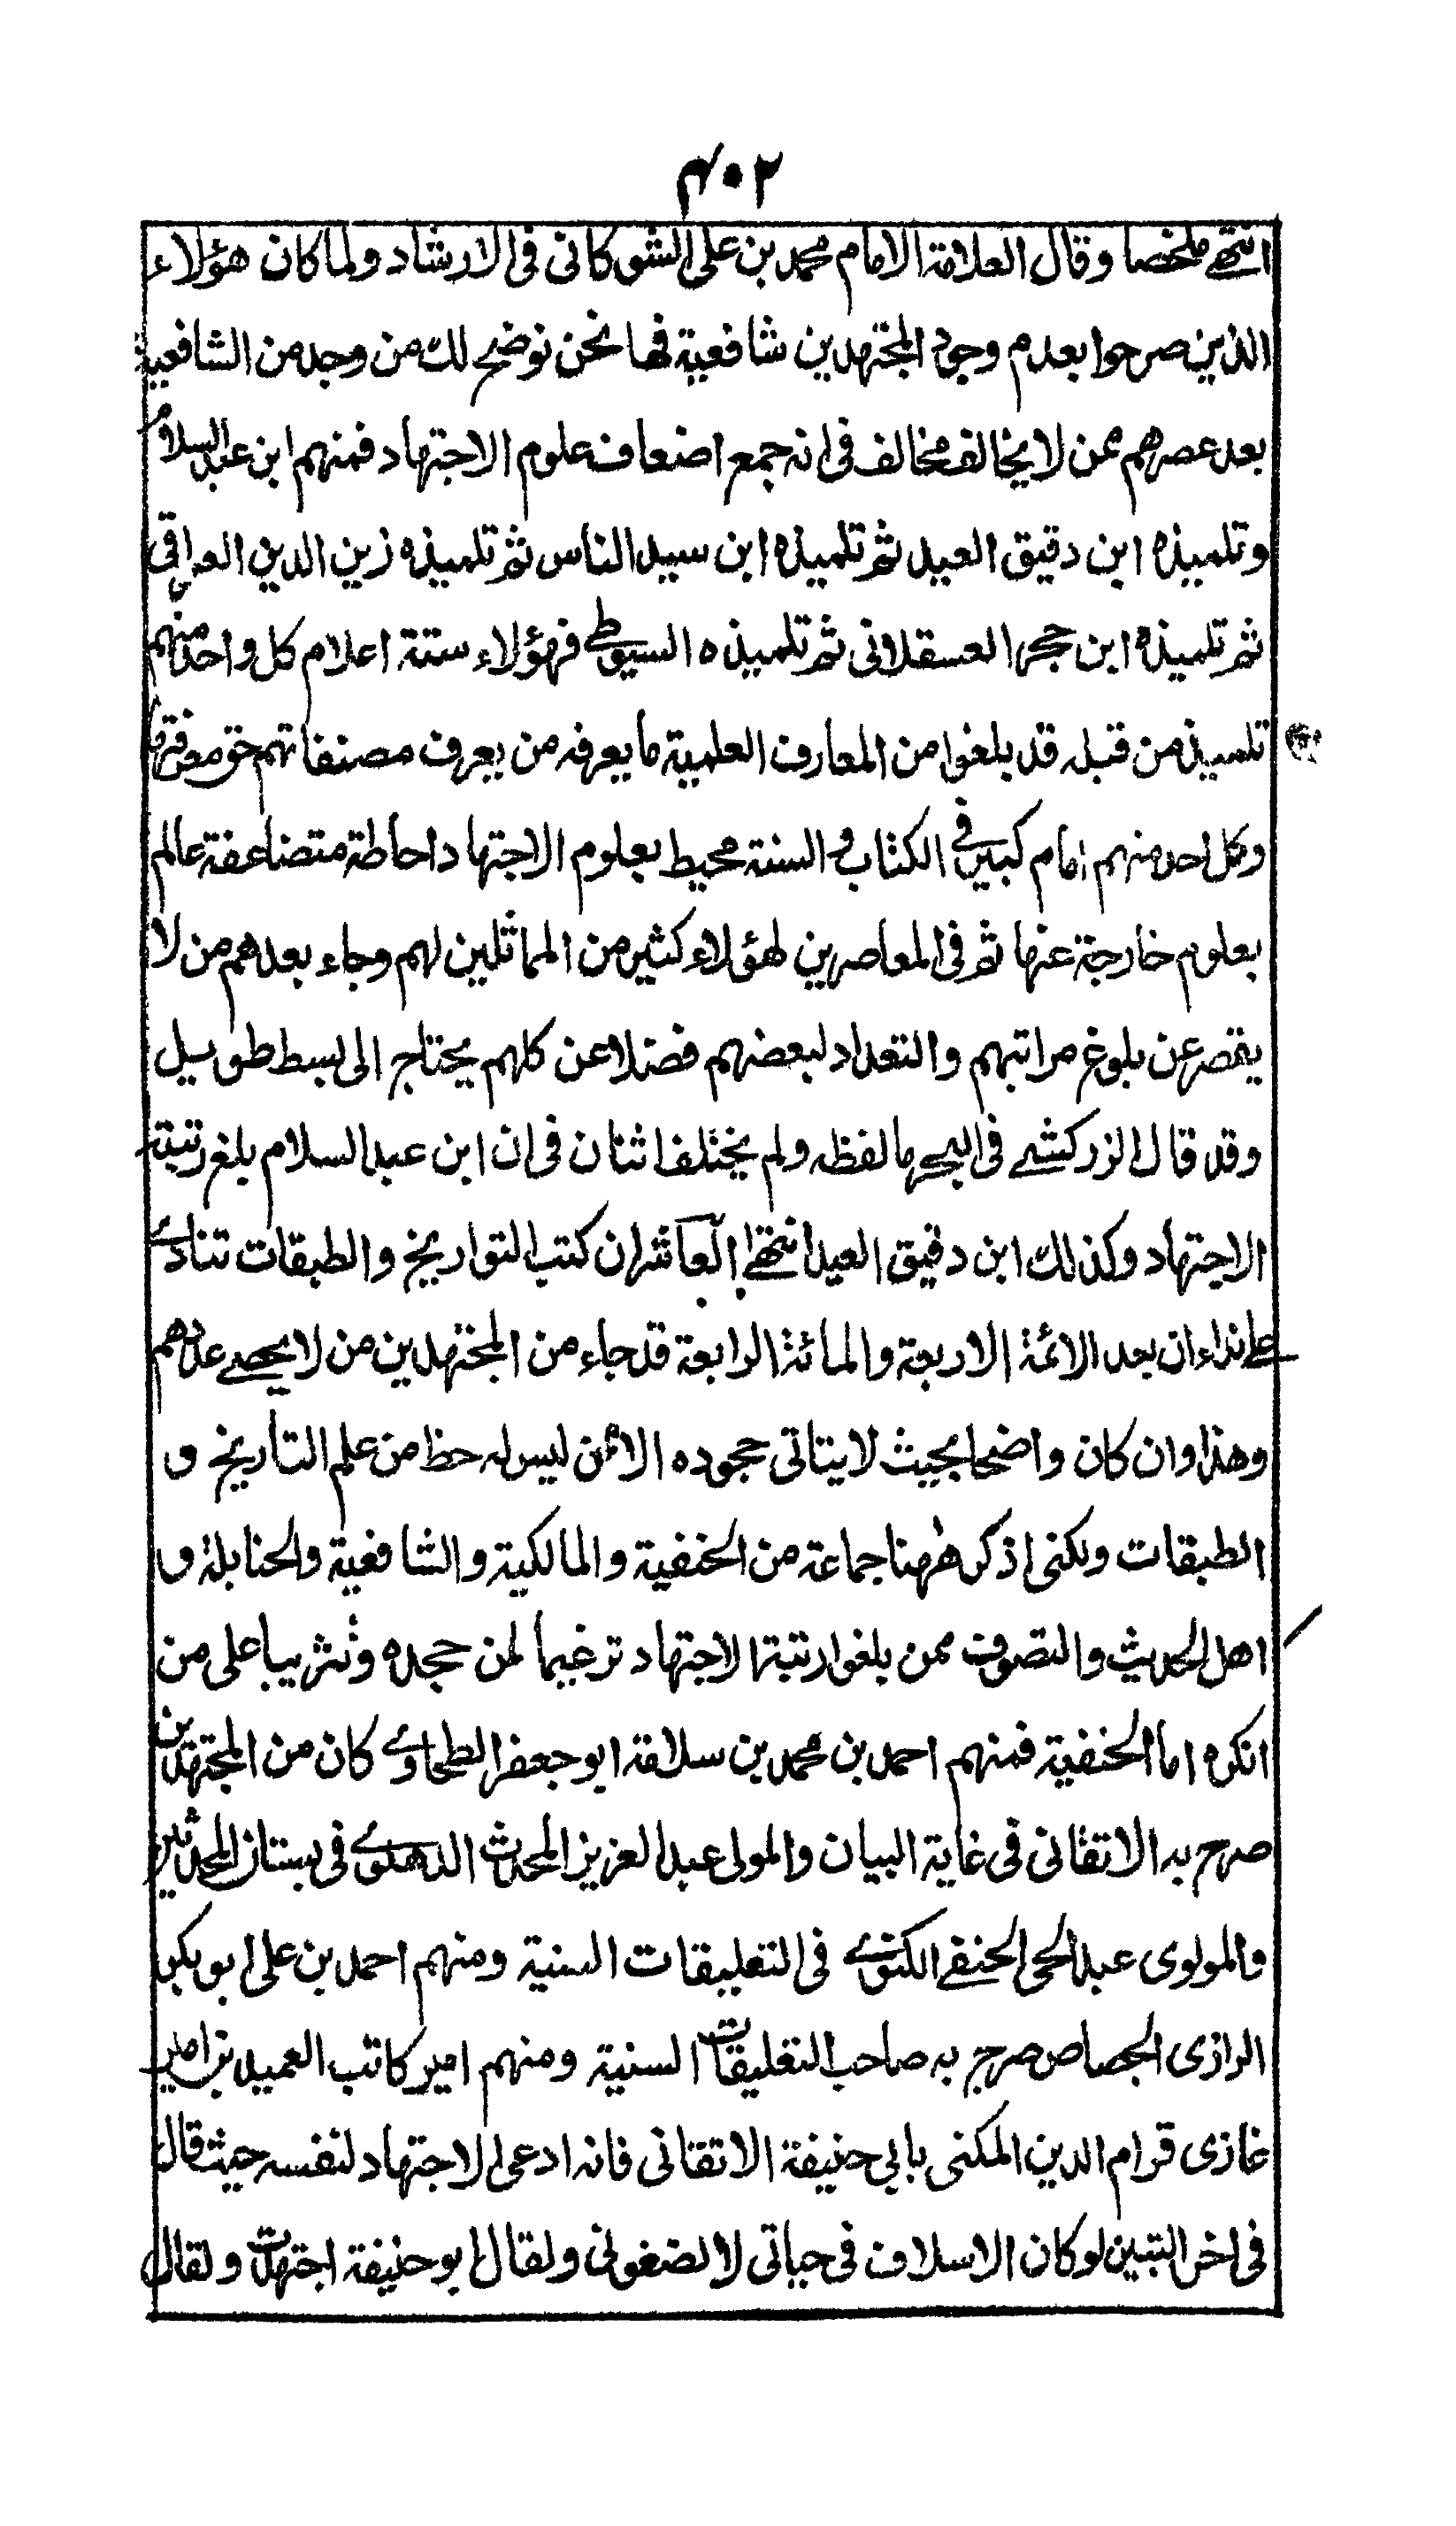 ۴۰۲
انتهى ملخصا وقال العلامة الامام محمد بن على الشوكانى فى الارشاد ولما كان هؤلاء
الذين صرحوا بعدم وجود المجتهدين شافعية فها نحن نوضح لك من وجد من الشافعية
بعد عصرهم ممن لا يخالف مخالف فى انه جمع اضعاف علوم الاجتهاد فمنهم ابن عبد السلام
وتلميذه ابن دقيق العيد ثم تلميذه ابن سيد الناس ثم تلميذه زين الدين العراقى
ثم تلميذه ابن حجر العسقلانى ثم تلميذه السيوطى فهؤلاء ستة اعلام كل واحد منهم
تلميذ من قبله قد بلغوا من المعارف العلمية ما يعرفه من يعرف مصنفاتهم حق معرفتها
وكل احد منهم امام كبير فى الكتاب و السنة محيط بعلوم الاجتهاد احاطة متضاعفة عالم
بعلوم خارجة عنها ثم فى المعاصرين لهؤلاء كثير من المماثلين لهم وجاء بعدهم من لا
يقصر عن بلوغ مراتبهم والتعداد لبعضهم فضلا عن كلهم يحتاج الى بسط طويل
وقد قال الزركشے فى البحر ما لفظه ولم يختلف اثنان فى ان ابن عبد السلام بلغ رتبة
الاجتهاد وكذلك ابن دقيق العيد انتهى العاشر ان كتب التواريخ والطبقات تنادے
على نداء ان بعد الائمة الاربعة والمائة الرابعة قد جاء من المجتهدين من لا يحصے عددهم
وهذا وان كان واضحا بحيث لا يتاتى جحوده الا ممن ليس له حظ من علم التاريخ و
الطبقات ولكنى اذكر ههنا جماعة من الحنفية والمالكية والشافعية والحنابلة و
اهل الحديث والتصوف ممن بلغوا رتبة الاجتهاد ترغيما لمن جحده وتثريبا على من
انكره اما الحنفية فمنهم احمد بن محمد بن سلامة ابو جعفر الطحاوے كان من المجتهدين
صرح به الاتقانى فى غاية البيان والمولى عبد العزيز المحدث الدهلوے فى بستان المحدثين
والمولوى عبد الحى الحنفے الكنوے فى التعليقات السنية ومنهم احمد بن على ابو بكر
الرازى الجصاص صرح به صاحب التعليقات السنية ومنهم امير كاتب العميد بن امير
غازى قوام الدين المكنى بابي حنيفة الاتقانى فانه ادعى الاجتهاد لنفسه حيث قال
فى اخر التبيين لو كان الاسلاف فى حياتى لانصفونى ولقال ابو حنيفة اجتهدت ولقال